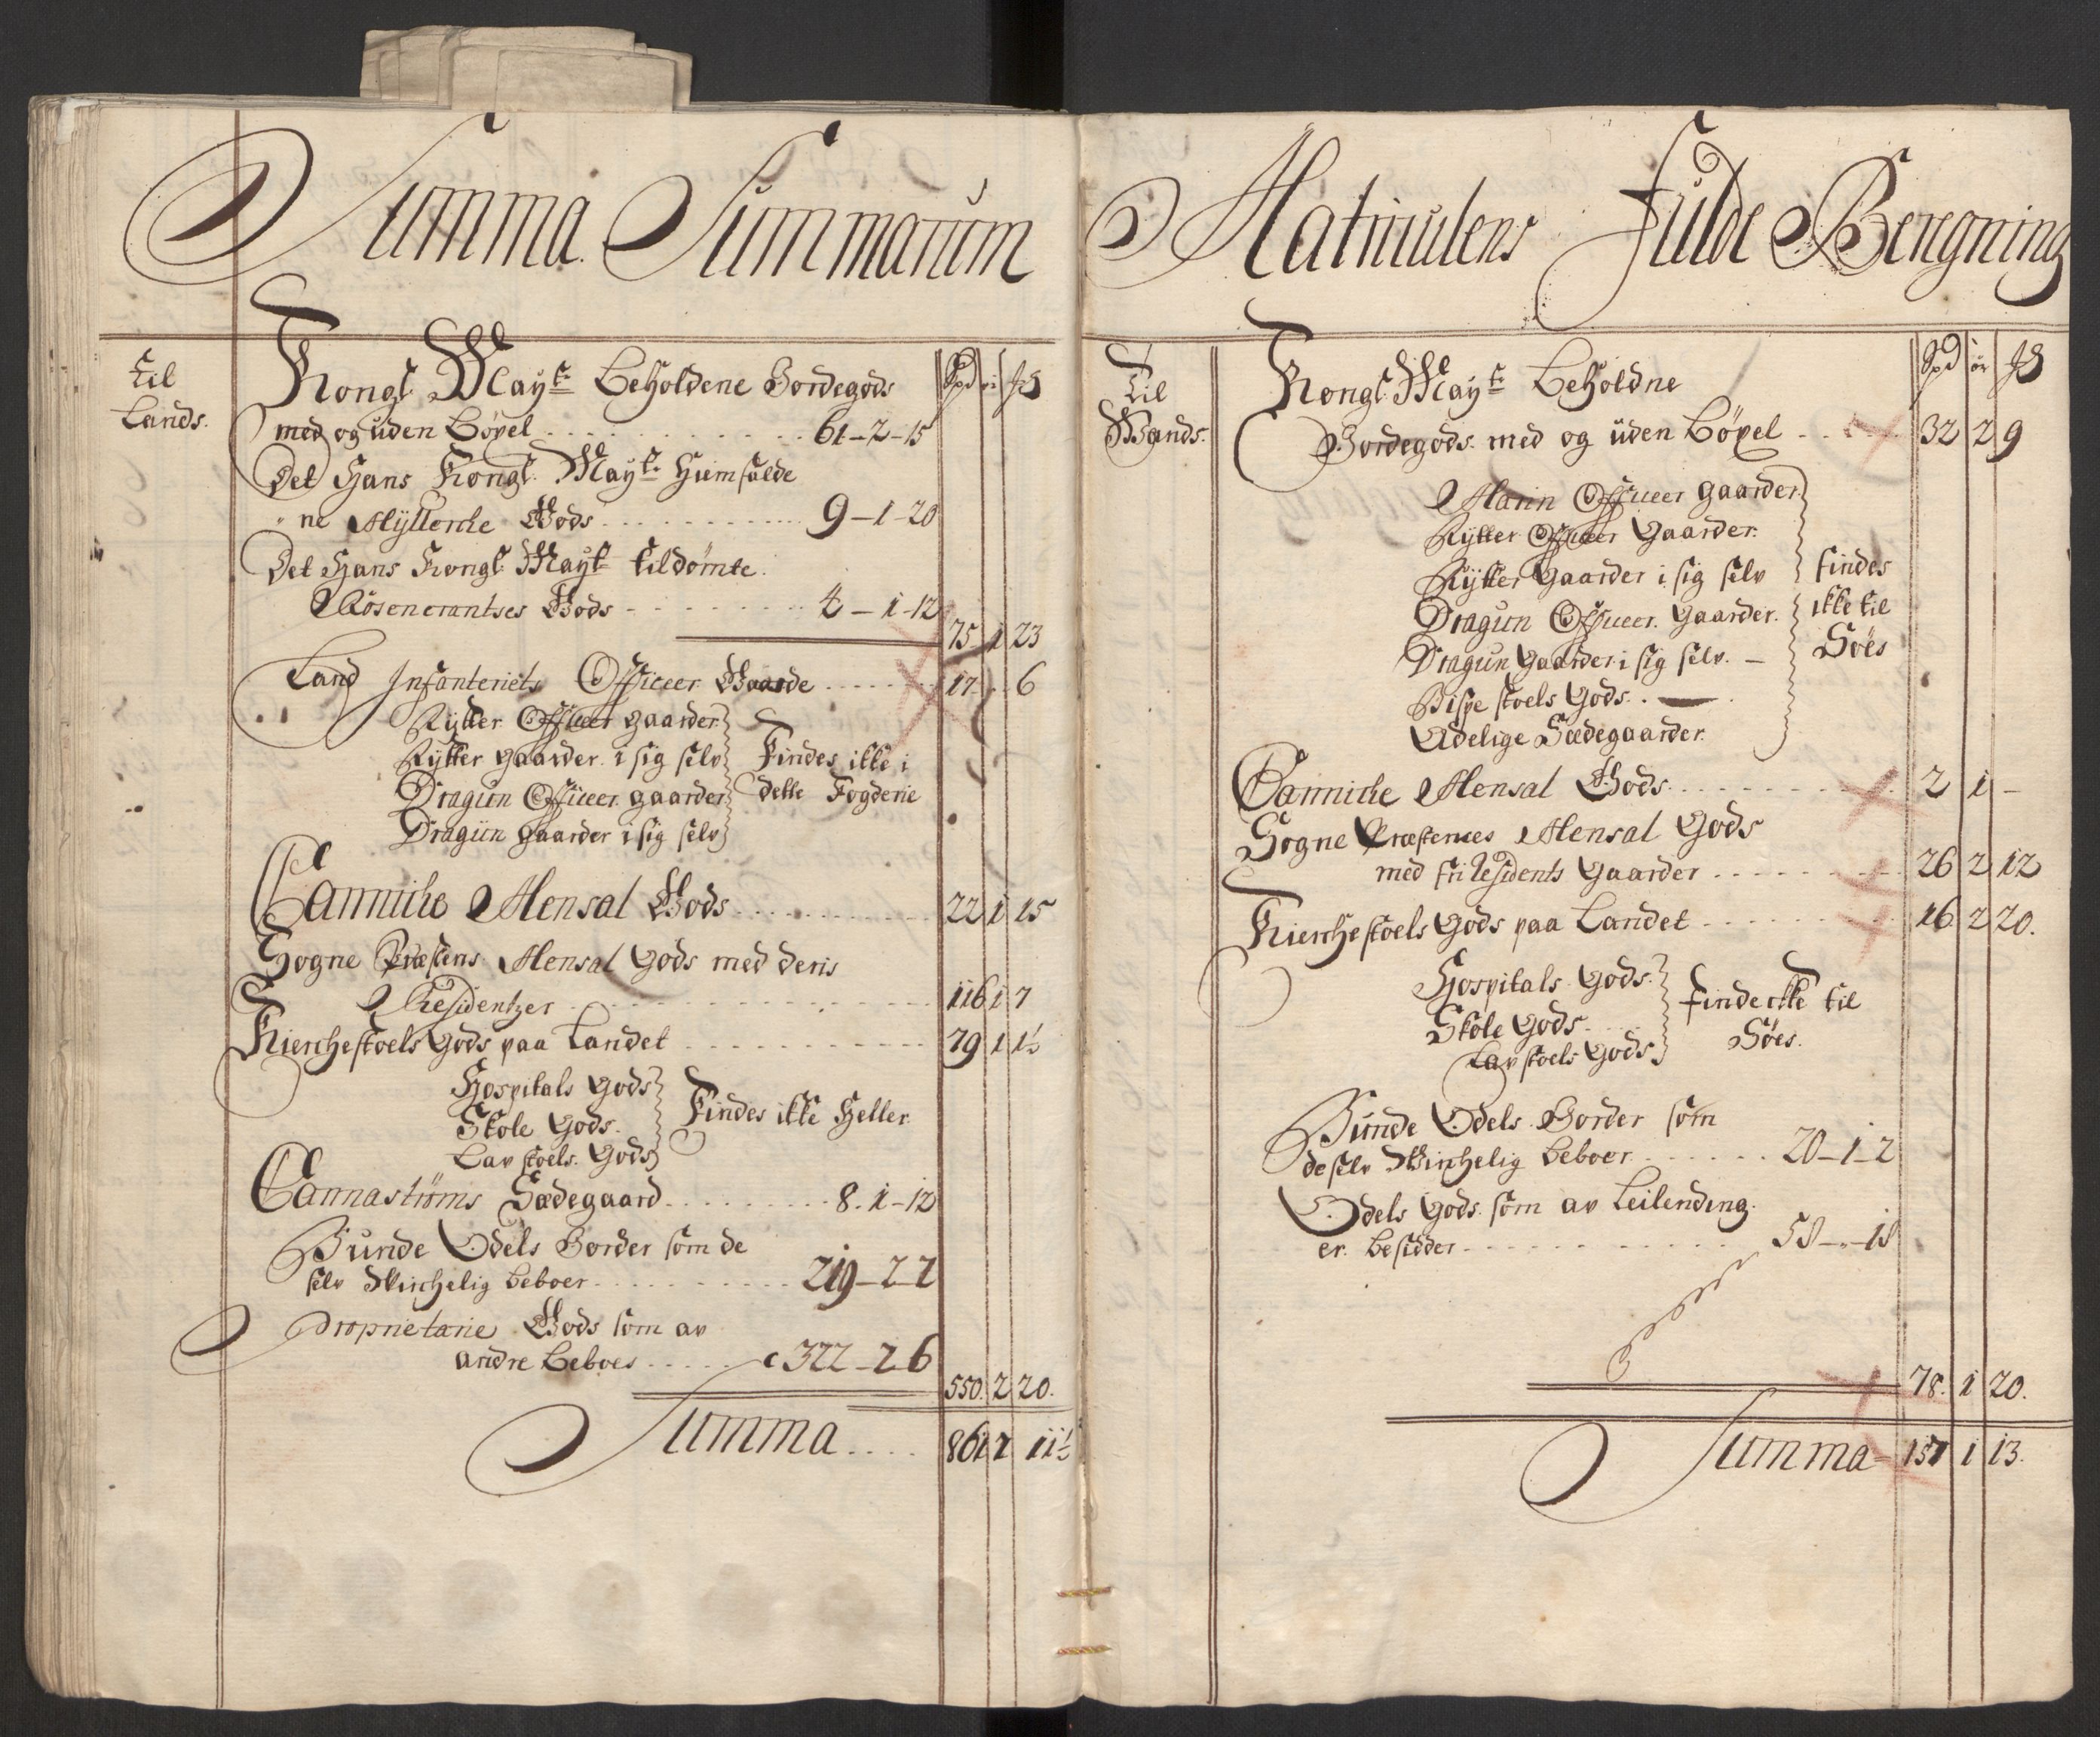 Summa Summarum
Til
Lands.
Kongl. Mayts Beholdene Bordegods
Spd ør mk
med og uden Böxel . . . . . . 61-2-15
Det Hans Kongl. Mayts Hiemfalde
ne Mÿllerche Gods . . . . . . 9-1-20
Det Hans Kongl. Mayt tildömte
Rosencrantzes Gods . . . . . . 4-1-12
75 1 23
Land Infanteriets Officeer Gaarde . . . . . . 17 . . 6
Rytter Officeer gaarder
Rytter gaarder i sig selv Findes ikke i
Dragun Officeer gaarder dette Fogderie
Dragun gaarder i sig selv
Canniche Mensal Gods . . . . . . 22 1 15
Sogne Præstens Mensal Gods med deris
Residentzer . . . . . . 116 1 7
Kierchestoels Gods paa Landet . . . . . . 79 1 1½
Hospitals Gods
Skole Gods. Findes ikke Heller
Lavstoels Gods
Cannaströms Sædegaard . . . . . . 8.1-12
Bunde Odels Gorder som de
selv Wirchelig beboer . . . . . . 219-2-2
Proprietarie Gods som av
andre Beboes . . . . . 322-2-6
550. 2 20.
Summa . . . . 861 2 11½
Matriculens Fulde Beregning
Til
Wands.
Kongl. Mayts Beholdne
Spd ør mk
Bordegods med og uden Böxel . . . . 32 2 9
Marin Officeer gaarder
Rytter Officeer Gaarder.
Rytter gaarder i sig selv findes
Dragun Officeer. Gaarder. ikke til
Dragun gaarder i sig selv. - Söes
Bispestoels Gods.
Adelige Sædegaarder.
Canniche Mensal Gods . . . . . . 2 1 -
Sogne Præsternes Mensal Gods
med fri Residents Gaarder . . . . . . 26 2 12
Kierchestoels Gods paa Landet . . . . . . 16 2 20.
Hospitals Gods.
Skole Gods. finde ikke til
Lavstoels Gods Söes.
Bunde Odels Gorder som
de selv Wirchelig beboer . . . . . . 20-1-2
Odels Gods som av Leilending
er besidder . . . . . . 58-„-18
78. 1 20.
Summa 157 1 13.